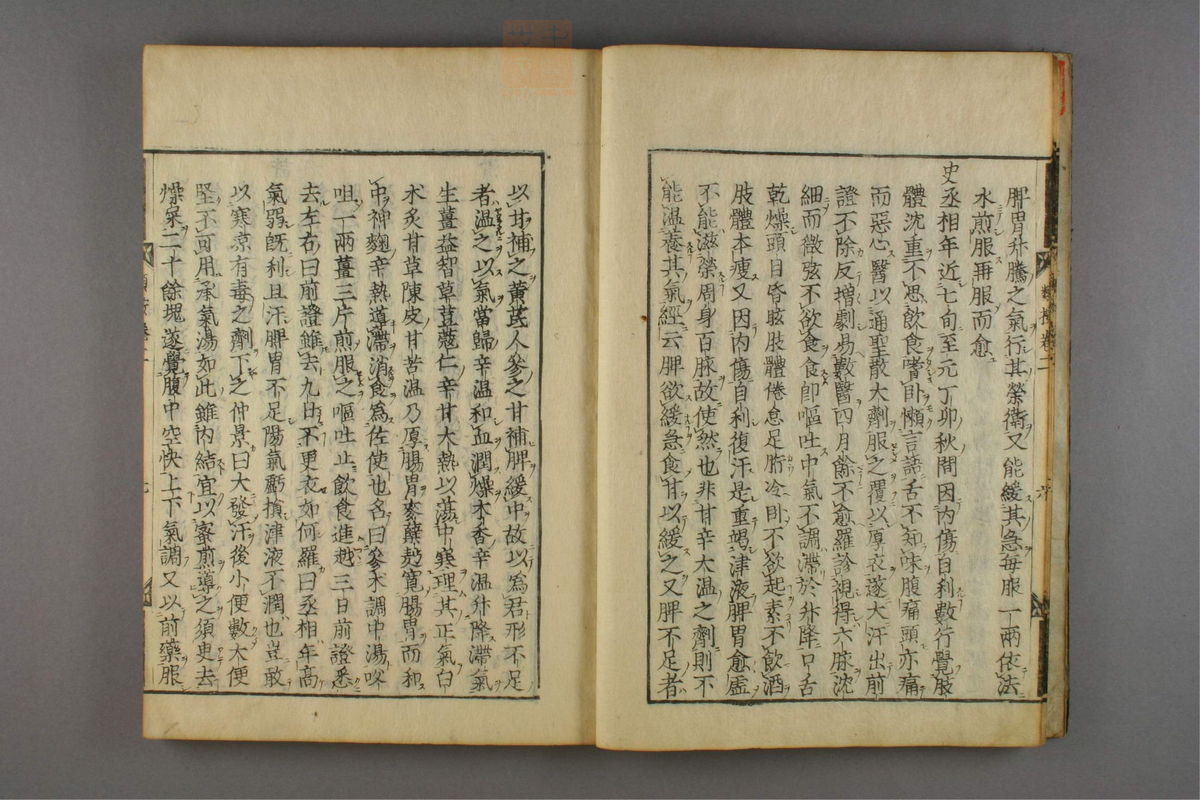 脾胃升騰之氣行其榮衛又能緩其急每服一兩依法
水煎服再服而愈
史丞相年近七旬至元丁卯秋間因内傷自利數行覺肢
體沈重不思飲食嗜臥懶言語舌不知味腹痛頭亦痛
而惡心醫以通聖散大劑服之覆以厚衣遂大汗出前
證不除反增劇易數醫四月餘不愈羅診視得六脉沈
細而微弦不欲食食即嘔吐中氣不調滯於升降口舌
乾燥頭目昏眩肢體倦怠足胻冷卧不欲起素不飲酒
肢體本瘦又因内傷自利復汗是重竭津液脾胃愈虚
不能滋榮周身百脉故使然也非甘辛大温之劑則不
能温養其氣經云脾欲緩急食甘以緩之又脾不足者
以甘補之黄芪人參之甘補脾緩中故以爲君形不足
者温之以氣當歸辛温和血潤燥木香辛温升降滯氣
生薑益智草荳蔲仁辛甘大熱以蕩中寒理其正氣白
朮炙甘草陳皮甘苦温乃厚腸胃麥蘖麪寬腸胃而和
中神麹辛熱導滯消食爲佐使也名曰參朮調中湯㕮
咀一兩薑三片煎服之嘔吐止飲食進越三日前證悉
去左右曰前證雖去九日不更衣如何羅曰丞相年高
氣弱既利且汗脾胃不足陽氣虧損津液不潤也豈敢
以寒凉有毒之劑下之仲景曰大發汗後小便數大便
堅不可用承氣湯如此雖内結宜以蜜煎導之須臾去
燥屎二十餘塊遂覺腹中空快上下氣調又以前藥服